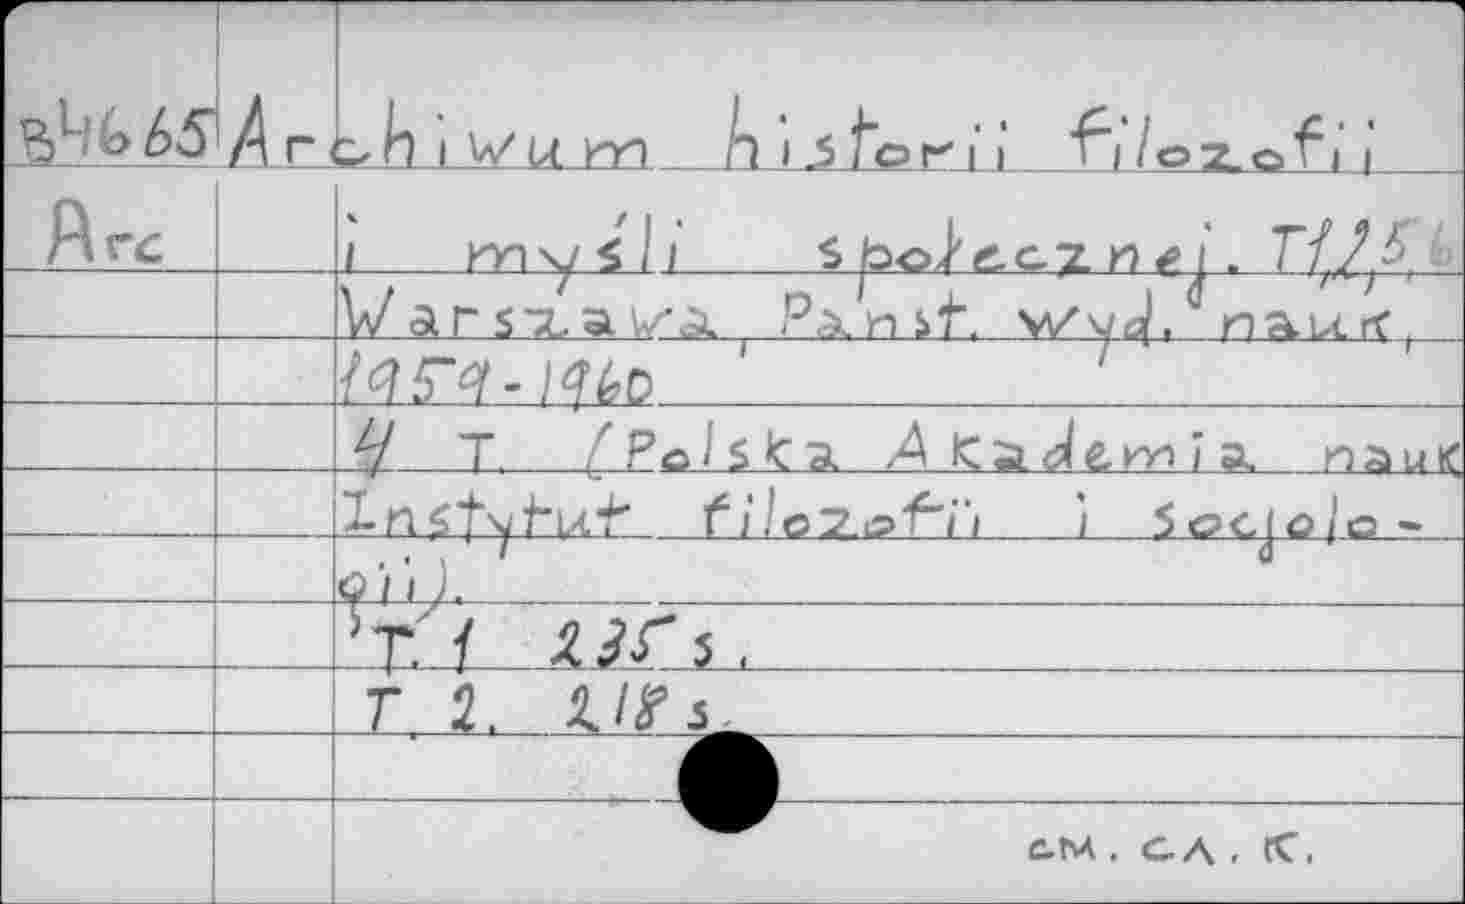 В4665 Archiwum historii filozofii
Arc i myśli społecznej. T1,2,5,6
Warszawa, Panst. wyd. nauk,
1959-1960
4 T. (Polska Akademia nauk
Instytut filozofii i Socjolo-
gii).
T. 1 235 s.
T. 2. 218 s.
см. сл. К.